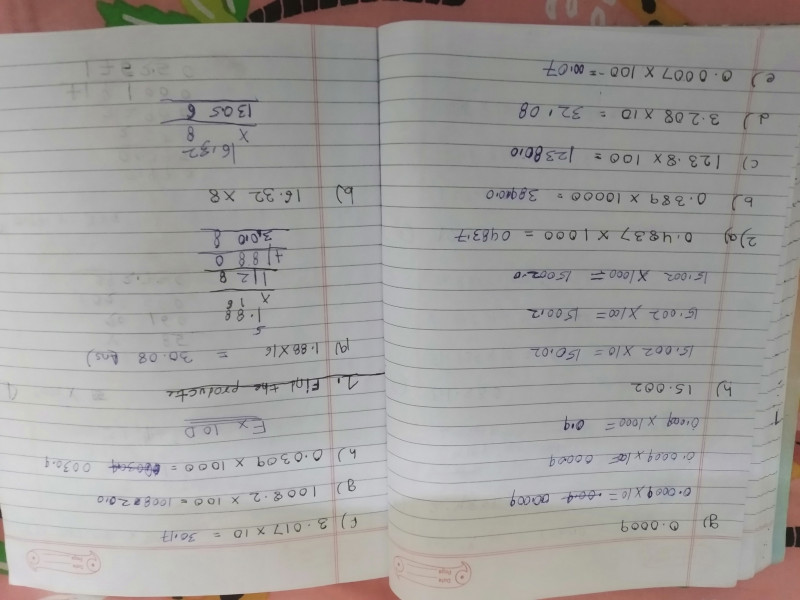 g) 0.0009
0.0009 X 10 = 00.009
0.0009 X 100 = 000.09
0.0009 X 1000 = 0.9
h) 15.002
15.002 X 10 = 150.02
15.002 X 100 = 1500.2
15.002 X 1000 = 15002.0
2) a) 0.4837 X 1000 = 0483.7
b) 0.389 X 10000 =
c) 123.8 X 100 = 12380.0
d) 3.208 X 10 = 32.08
e) 0.0007 X 100 = 00.07
f) 3.017 X 10 = 30.17
g) 1008.2 X 100 =
h) 0.0309 X 1000 = 0030.9
Ex 10D
1. Find the products
a) 1.88 X 16 = 30.08 Ans)
5
1.88
X 16
112 8
+188 0
3,010 8
b) 16.32 X 8
16.32
X 8
1305 6